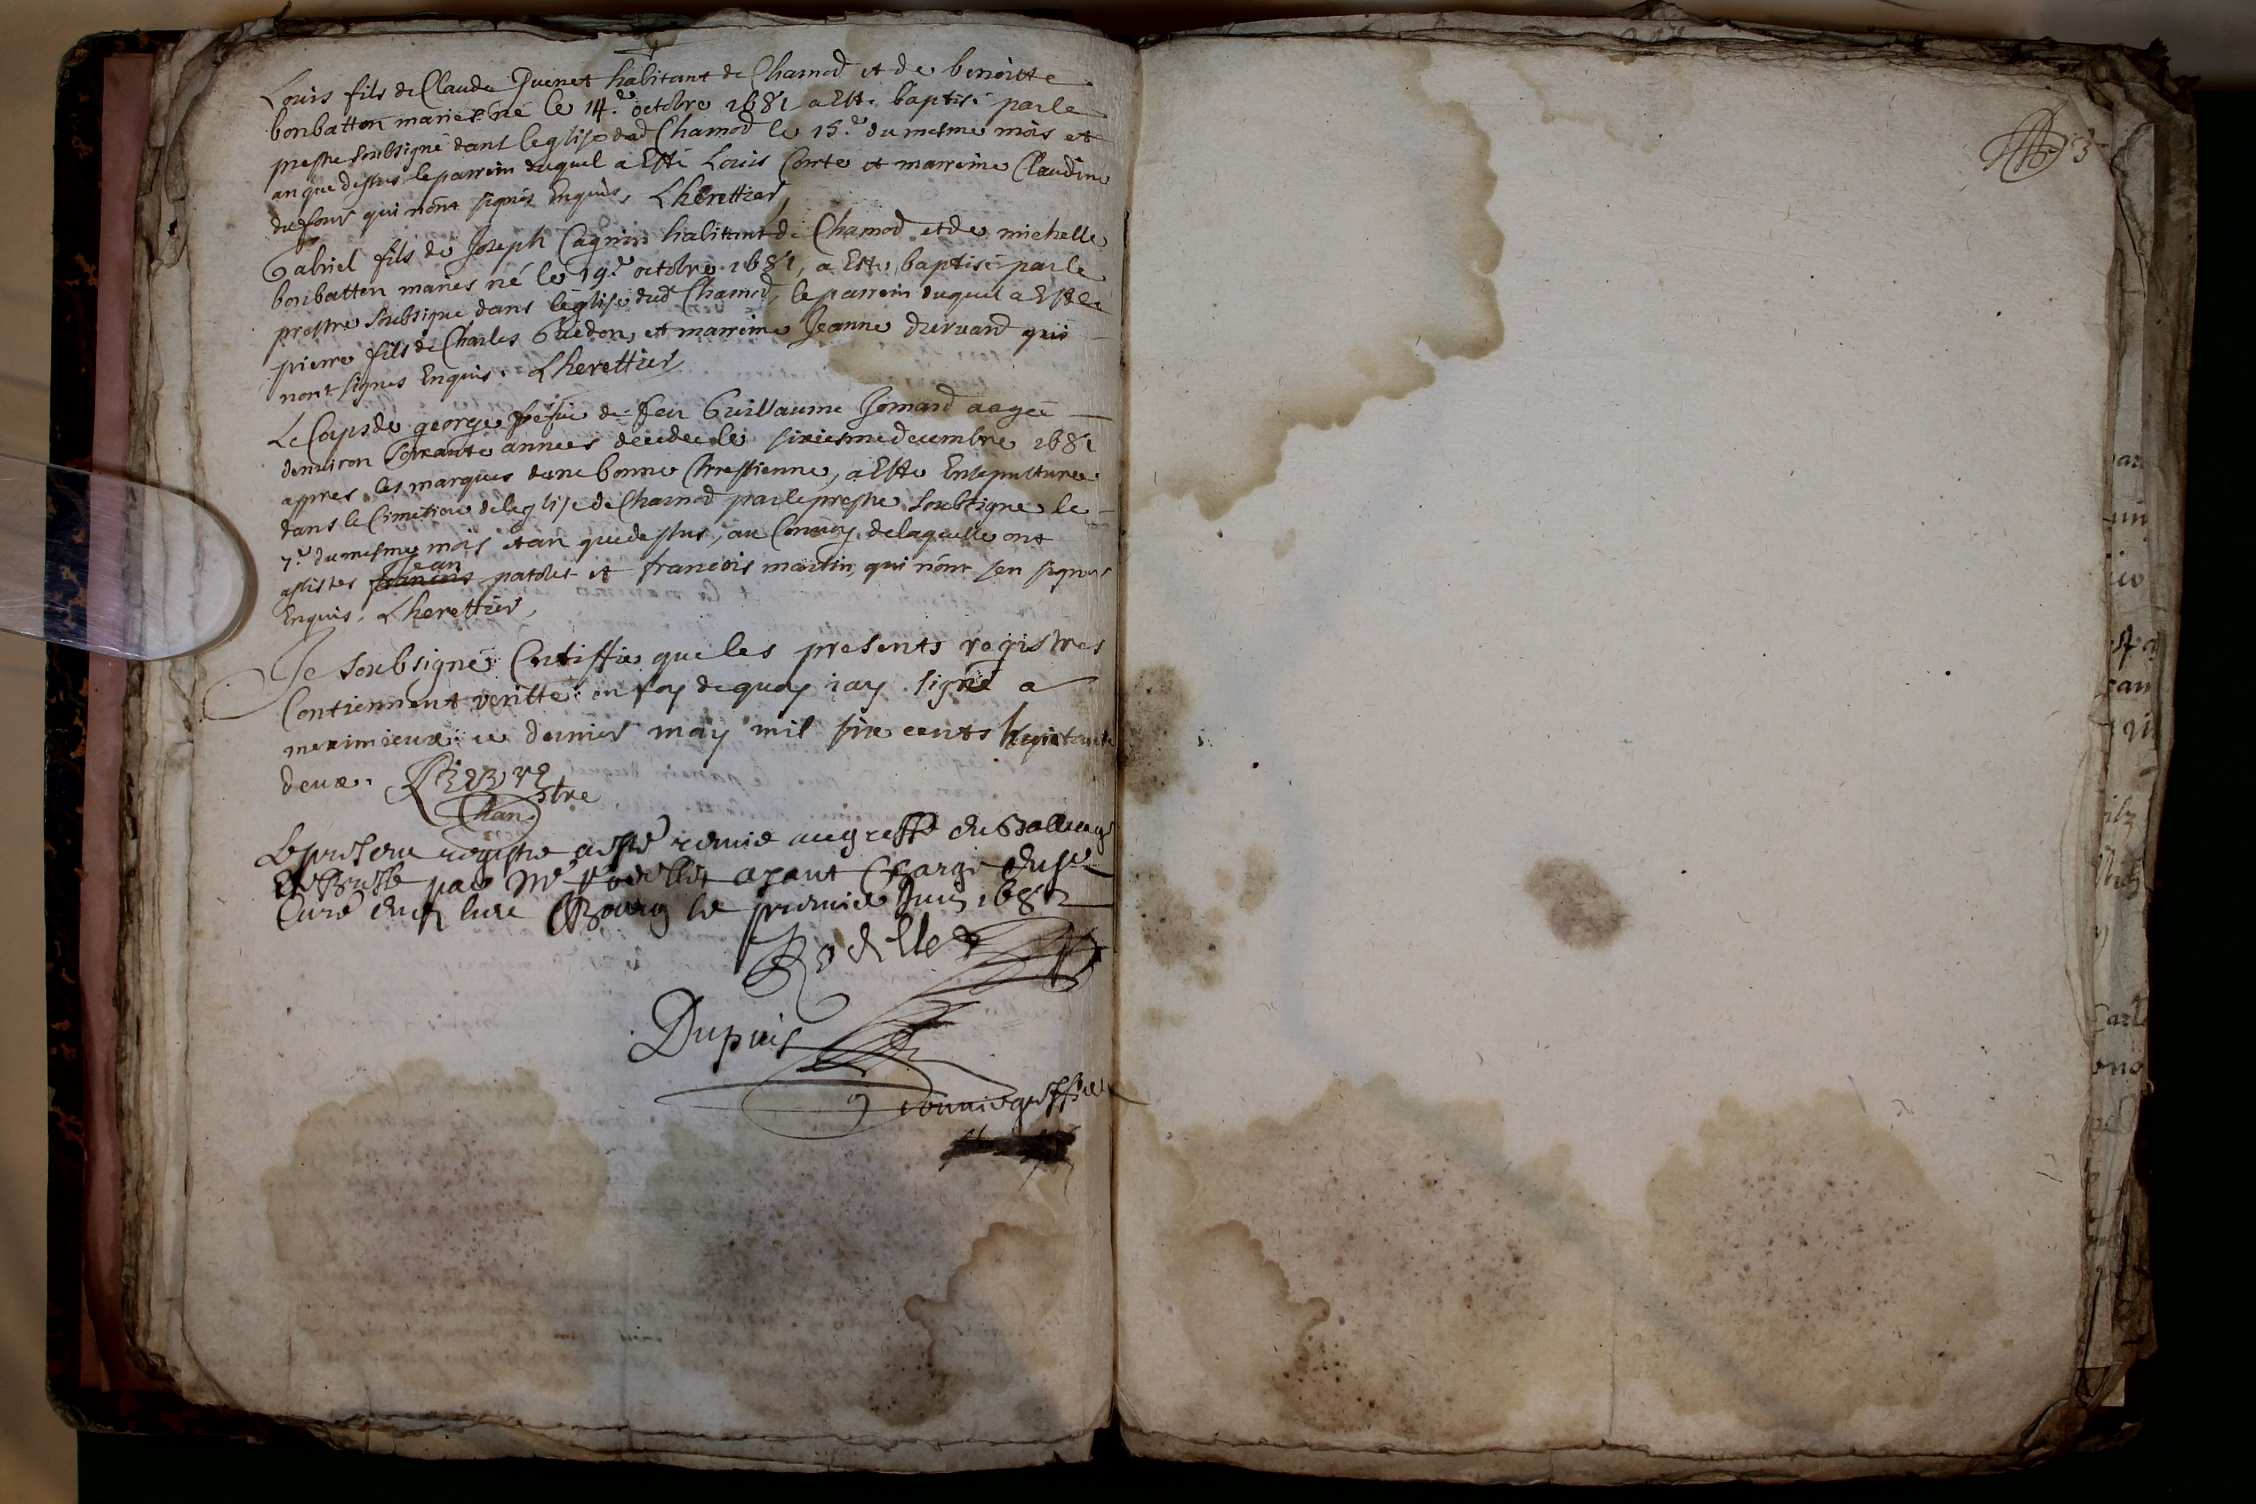 Louis fils de Claude Quenet habitant de Chamod et de benoitte
bonbatton mariés né le 14.e octobre 1681 a Esté baptisé par le
prestre soubsigné dans leglise dud Chamod le 15.e du mesme mois et
an que dessus le parrein duquel a Esté Louis Conte et marreine Claudine
qui nont signés Enquis. Lherettier
Gabriel fils de Joseph Cagnin habitant de Chamod et de michelle
bonbatton mariés né le 19.e octobre 1681, a Esté baptisé par le
prestre soubsigné dans leglise dud Chamod, le parrein duquel a Esté
pierre fils de Charles Guedon, et marreine Jeanne duruard qui
nont signés Enquis. Lherettier
Le Corps de george de feu Guillaume Jomard aagée
denviron soixante années decedee le sixiesme decembre 1681
appres les marques dune bonne Chrestienne, a Esté Ensepulturee
dans le Cimetiere de leglise de Chamod par le prestre soubsigné le
7.e du mesme mois et an que dessus, au Convoy de laquelle ont
assistes francois jean patolet et francois martin, qui nont sen signes
Enquis. Lherettier
Je soubsigné Certiffie que les presents registres
Contiennent veritté en foy de quoy iay signé a
meximieux ce dernier may mil six cents huictante
deux. Pierre
Le present registre a esté remis au greffe du Balliage
de Bresse par Me Rodellet ayant Charge du sr
Curé dud lieu a Bourg le premier Juin 1682
Rodellet
Dupuis
Commis greffier
3